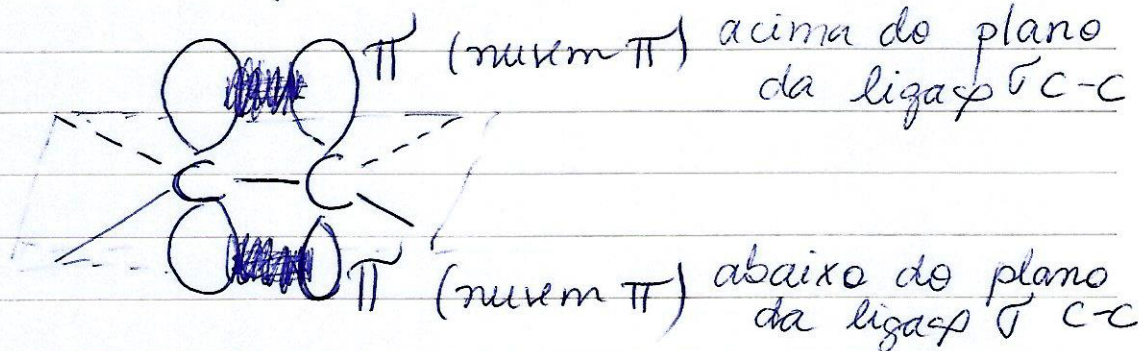 π (nuvem π) acima do plano
da ligação σ C-C
C — C
π (nuvem π) abaixo do plano
da ligação σ C-C